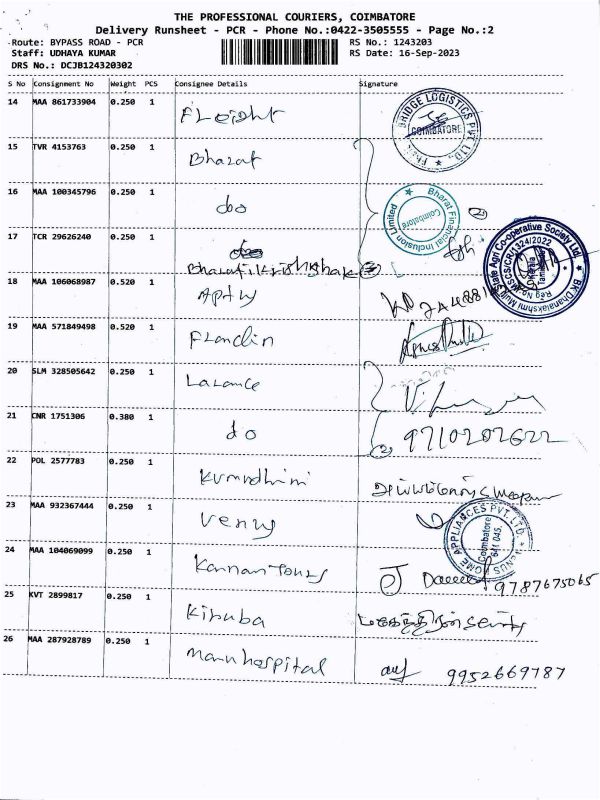 THE PROFESSIONAL COURIERS, COIMBATORE
Delivery Runsheet - PCR - Phone No.:0422-3505555 - Page No.:2
Route: BYPASS ROAD - PCR RS No.: 1243203
Staff: UDHAYA KUMAR RS Date: 16-Sep-2023
DRS No.: DCJB124320302
S No Consignment No Weight PCS Consignee Details Signature
14 MAA 861733904 0.250 1 FLeight BRIDGE LOGISTICS PVT LTD. COIMBATORE
15 TVR 4153763 0.250 1 Bharat
16 MAA 100345796 0.250 1 do Bharat Financial Inclusion Limited Coimbatore (2)
17 TCR 29626240 0.250 1 State Agri Co-operative Society Ltd.
18 MAA 106068987 0.520 1
19 MAA 571849498 0.520 1
20 SLM 328505642 0.250 1
21 CNR 1751306 0.380 1 do (2) 9710202622
22 POL 2577783 0.250 1 Kumudhini
23 MAA 932367444 0.250 1 Venus VENUS HOME APPLIANCES PVT. LTD. Coimbatore 641 045.
24 MAA 104069099 0.250 1 Kannan Tours 9787675065
25 KVT 2899817 0.250 1 Kiruba
26 MAA 287928789 0.250 1 Mann hospital 9952669787